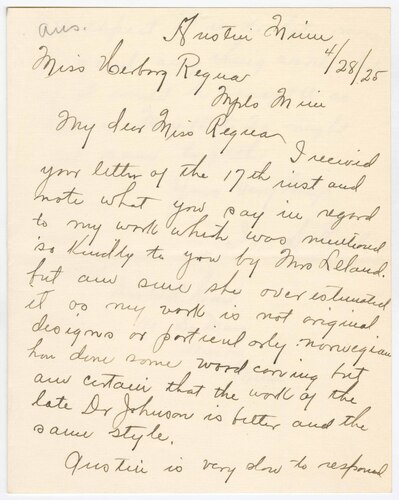 ans.
Austin Minn
4/28/25
Miss Herborg Reque
Mpls Minn
My dear Miss Reque
I recived
your letter of the 17th inst and
note what you say in regard
to my work which was mentioned
so kindly to you by Mrs Leland.
but am sure she over estimated
it as my work is not original
designs or particularly norwegian
hav done some wood carving but
am certain that the work of the
late Dr Johnson is better and the
same style.
Austin is very slow to respond